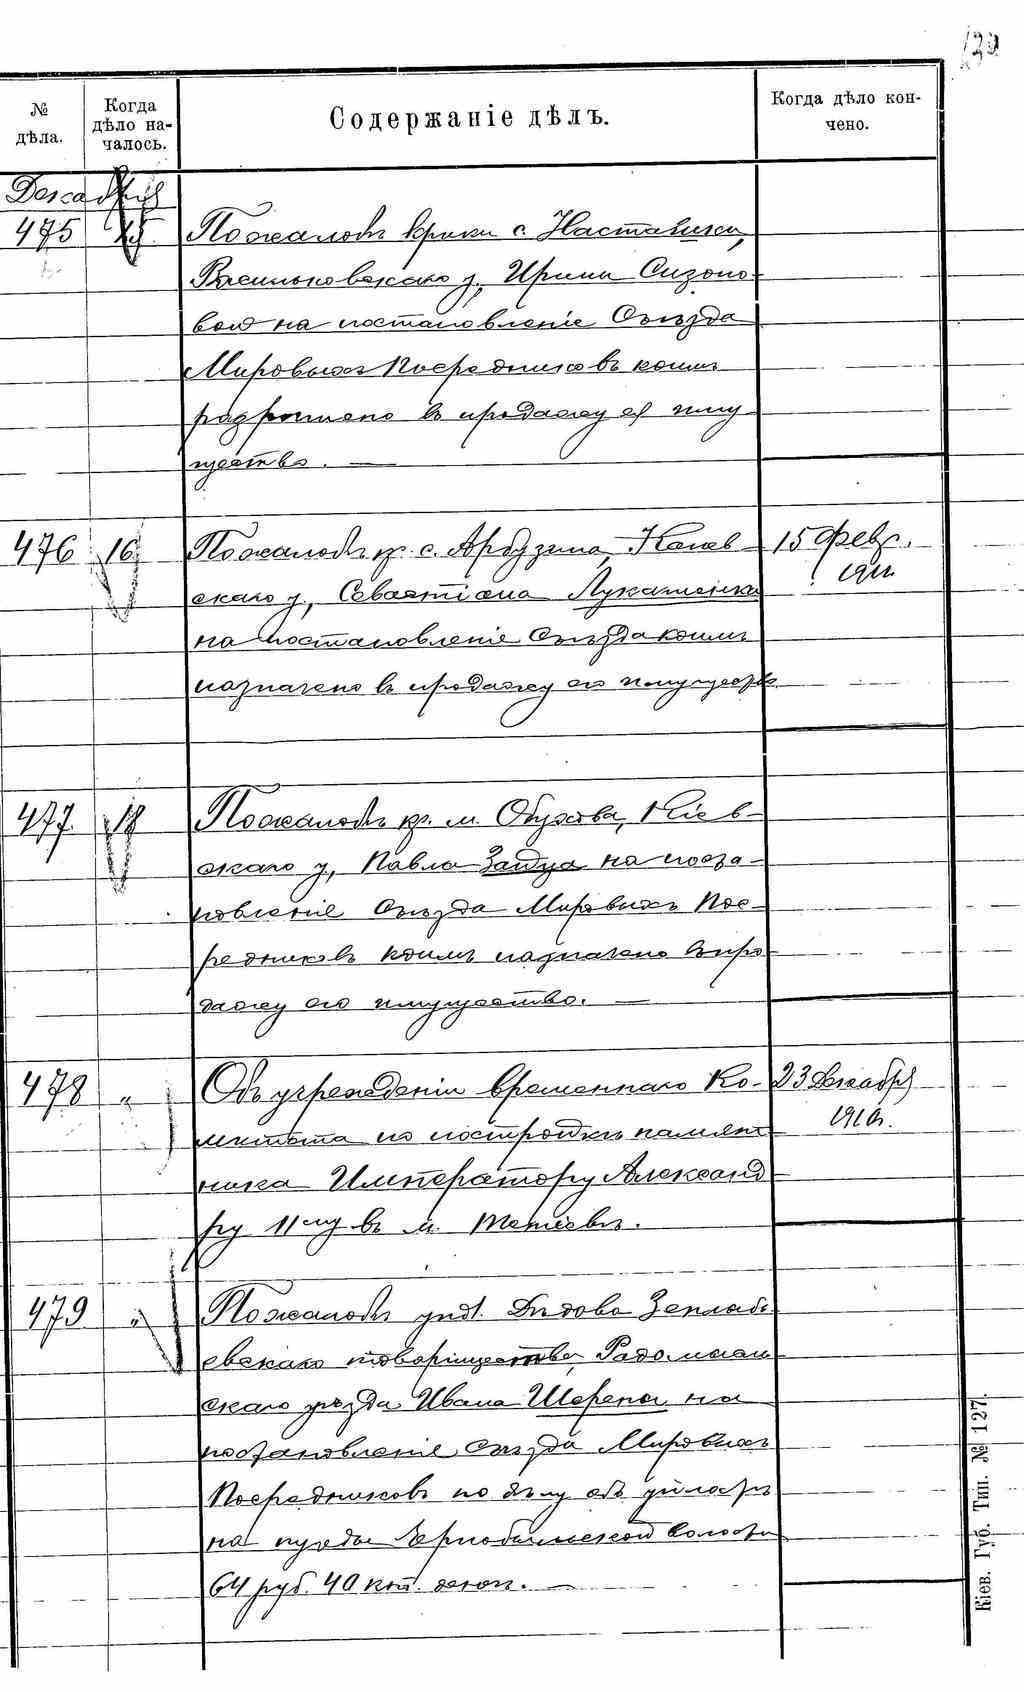 130
№ дѣла.
Когда дѣло началось.
Содержаніе дѣлъ.
Когда дѣло кончено.
Декабря
475 15 По жалобѣ кр-ки с. Насташки,
Васильковскаго у., Ирины Сизоно-
вой на постановленіе Съѣзда
Мировыхъ Посредниковъ коимъ
разрѣшено въ продажу ея иму-
щество. —
476 16 По жалобѣ кр. с. Арбузина, Канев- 15 Февр.
скаго у., Севастіана Лукашенка 1911.
на постановленіе Съѣзда коимъ
назначено въ продажу его имущество
477 18 По жалобѣ кр. м. Обухова, Кіев-
скаго у., Павла Зайца на поста-
новленіе Съѣзда Мировыхъ Пос-
редниковъ коимъ назначено въ про-
дажу его имущество. —
478 " Объ учрежденіи временнаго Ко- 23 Декабря
митета по постройкѣ памят- 1910г.
ника Императору Александ-
ру II му въ м. Тетіевѣ.
479 " По жалобѣ упол. Дѣдова
евскаго товарищества, Радомысль-
скаго уѣзда Ивана Шерепы на
постановленіе Съѣзда Мировыхъ
Посредниковъ по дѣлу объ уплатѣ
на нужды Чернобыльской волости
64 руб. 40 коп. денег. —
Кіев. Губ. Тип. № 127.